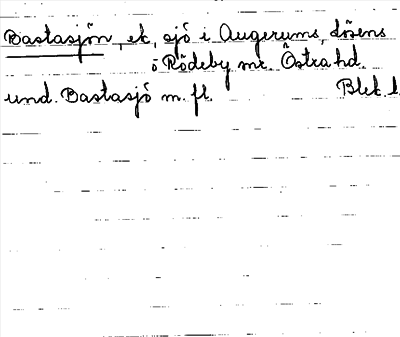 Bastasjön, ek, sjö i Augerums, Lösens
o Rödeby mr. Östra hd.
und. Bastasjö m. fl. Blek. l